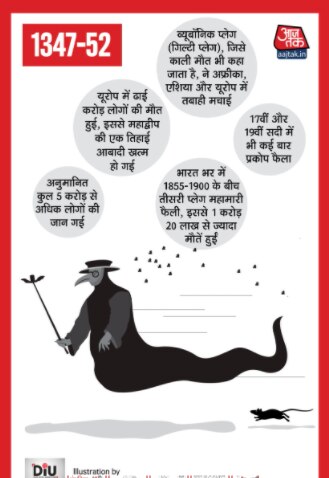 1347-52
आज तक
aajtak.in
ब्यूबॉनिक प्लेग
(गिल्टी प्लेग), जिसे
काली मौत भी कहा
जाता है, ने अफ्रीका,
एशिया और यूरोप में
तबाही मचाई
यूरोप में ढाई
करोड़ लोगों की मौत
हुई, इससे महाद्वीप
की एक तिहाई
आबादी खत्म
हो गई
17वीं और
19वीं सदी में
भी कई बार
प्रकोप फैला
भारत भर में
1855-1900 के बीच
तीसरी प्लेग महामारी
फैली, इससे 1 करोड़
20 लाख से ज्यादा
मौतें हुईं
अनुमानित
कुल 5 करोड़ से
अधिक लोगों की
जान गई
DiU
Illustration by